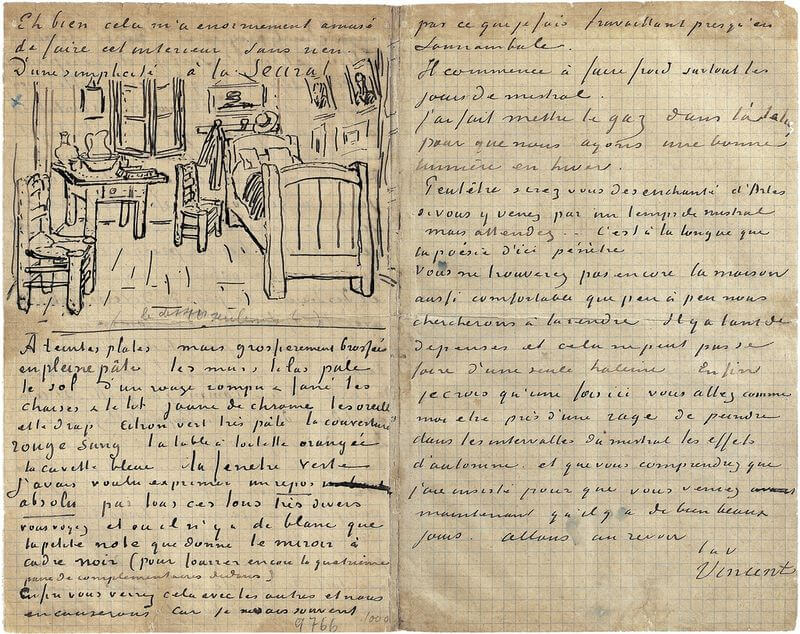 Eh bien cela m'a enormement amusé
de faire cet interieur sans rien.
D'une simplicité à la Seurat
A teintes plates mais grossierement brossées
en pleine pâte les murs lilas pale
le sol d'un rouge rompu & fané les
chaises & le lit jaune de chrome les oreillers
et le drap citron vert très pâle la couverture
rouge sang la table à toilette orangée
la cuvette bleue la fenetre verte
J'avais voulu exprimer un repos
absolu par tous ces tons très divers
vous voyez et où il n'y a de blanc que
la petite note que donne le miroir à
cadre noir (pour fourrer encore la quatrieme
paire de complementaires dedans)
Enfin vous verrez cela avec les autres et nous
en causerons car je ne sais souvent
9766
1000
par ce que je fais travaillant presqu'en
somnambule.
Il commence à faire froid surtout les
jours de mistral.
J'ai fait mettre le gaz dans l'atelier
pour que nous ayons une bonne
lumière en hiver.
Peutêtre serez vous desenchanté d'Arles
si vous y venez par un temps de mistral
mais attendez.. C'est à la longue que
la poésie d'ici pénètre
Vous ne trouverez pas encore la maison
aussi comfortable que peu à peu nous
chercherons à la rendre Il y a tant de
depenses et cela ne peut pas se
faire d'une seule haleine Enfin
je crois qu'une fois ici vous allez comme
moi etre pris d'une rage de peindre
dans les intervalles du mistral les effets
d'automne. et que vous comprendrez que
j'aie insisté pour que vous veniez
maintenant qu'il y a de bien beaux
jours. allons au revoir
t. à v.
Vincent